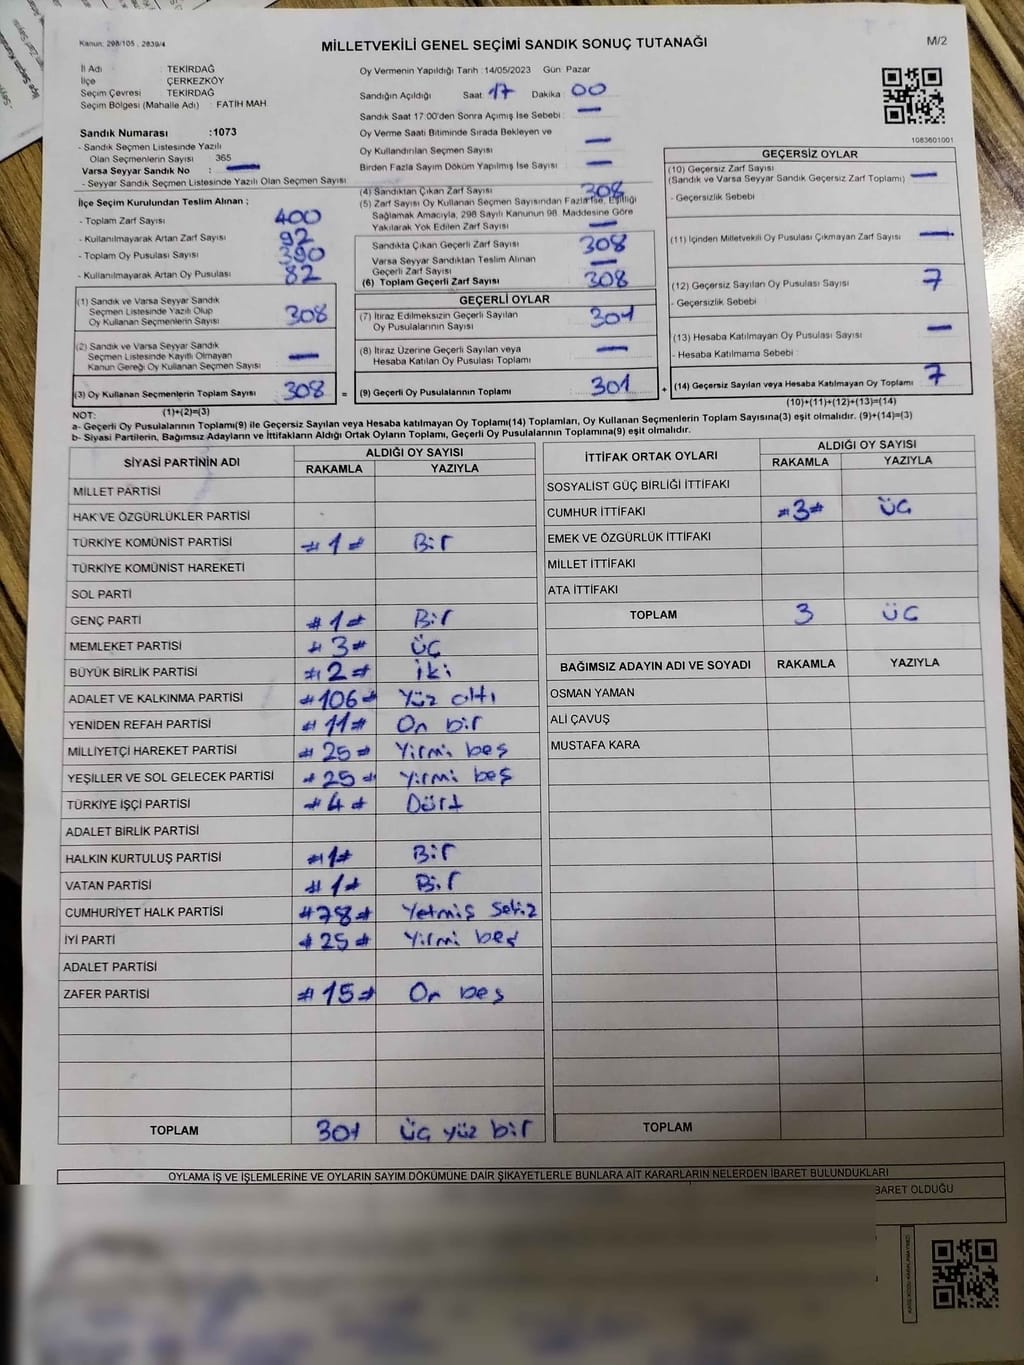 Kanun: 298/105 , 2839/4
MİLLETVEKİLİ GENEL SEÇİMİ SANDIK SONUÇ TUTANAĞI
M/2
İl Adı : TEKİRDAĞ
İlçe : ÇERKEZKÖY
Seçim Çevresi : TEKİRDAĞ
Seçim Bölgesi (Mahalle Adı) : FATİH MAH
Sandık Numarası :1073
- Sandık Seçmen Listesinde Yazılı
Olan Seçmenlerin Sayısı 365
Varsa Seyyar Sandık No : —
- Seyyar Sandık Seçmen Listesinde Yazılı Olan Seçmen Sayısı
İlçe Seçim Kurulundan Teslim Alınan ;
- Toplam Zarf Sayısı : 400
- Kullanılmayarak Artan Zarf Sayısı : 92
- Toplam Oy Pusulası Sayısı : 390
- Kullanılmayarak Artan Oy Pusulası : 82
(1) Sandık ve Varsa Seyyar Sandık
Seçmen Listesinde Yazılı Olup
Oy Kullanan Seçmenlerin Sayısı : 308
(2) Sandık ve Varsa Seyyar Sandık
Seçmen Listesinde Kayıtlı Olmayan
Kanun Gereği Oy Kullanan Seçmen Sayısı : —
(3) Oy Kullanan Seçmenlerin Toplam Sayısı : 308 =
(1)+(2)=(3)
Oy Vermenin Yapıldığı Tarih :14/05/2023 Gün: Pazar
Sandığın Açıldığı Saat: 17 Dakika: 00
Sandık Saat 17:00'den Sonra Açımış İse Sebebi : —
Oy Verme Saati Bitiminde Sırada Bekleyen ve
Oy Kullandırılan Seçmen Sayısı : —
Birden Fazla Sayım Döküm Yapılmış İse Sayısı : —
(4) Sandıktan Çıkan Zarf Sayısı : 308
(5) Zarf Sayısı Oy Kullanan Seçmen Sayısından Fazla İse, Eşitliği
Sağlamak Amacıyla, 298 Sayılı Kanunun 98. Maddesine Göre
Yakılarak Yok Edilen Zarf Sayısı : —
Sandıkta Çıkan Geçerli Zarf Sayısı : 308
Varsa Seyyar Sandıktan Teslim Alınan
Geçerli Zarf Sayısı : —
(6) Toplam Geçerli Zarf Sayısı : 308
GEÇERLİ OYLAR
(7) İtiraz Edilmeksizin Geçerli Sayılan
Oy Pusulalarının Sayısı : 301
(8) İtiraz Üzerine Geçerli Sayılan veya
Hesaba Katılan Oy Pusulası Toplamı : —
(9) Geçerli Oy Pusulalarının Toplamı : 301 +
1083601001
GEÇERSİZ OYLAR
(10) Geçersiz Zarf Sayısı
(Sandık ve Varsa Seyyar Sandık Geçersiz Zarf Toplamı) : —
- Geçersizlik Sebebi :
(11) İçinden Milletvekili Oy Pusulası Çıkmayan Zarf Sayısı : —
(12) Geçersiz Sayılan Oy Pusulası Sayısı : 7
- Geçersizlik Sebebi :
(13) Hesaba Katılmayan Oy Pusulası Sayısı : —
- Hesaba Katılmama Sebebi :
(14) Geçersiz Sayılan veya Hesaba Katılmayan Oy Toplamı : 7
(10)+(11)+(12)+(13)=(14)
NOT:
a- Geçerli Oy Pusulalarının Toplamı(9) ile Geçersiz Sayılan veya Hesaba katılmayan Oy Toplamı(14) Toplamları, Oy Kullanan Seçmenlerin Toplam Sayısına(3) eşit olmalıdır. (9)+(14)=(3)
b- Siyasi Partilerin, Bağımsız Adayların ve İttifakların Aldığı Ortak Oyların Toplamı, Geçerli Oy Pusulalarının Toplamına(9) eşit olmalıdır.
SİYASİ PARTİNİN ADI ALDIĞI OY SAYISI
RAKAMLA YAZIYLA
MİLLET PARTİSİ
HAK VE ÖZGÜRLÜKLER PARTİSİ
TÜRKİYE KOMÜNİST PARTİSİ #1# Bir
TÜRKİYE KOMÜNİST HAREKETİ
SOL PARTİ
GENÇ PARTİ #1# Bir
MEMLEKET PARTİSİ #3# Üç
BÜYÜK BİRLİK PARTİSİ #2# İki
ADALET VE KALKINMA PARTİSİ #106# Yüz altı
YENİDEN REFAH PARTİSİ #11# On bir
MİLLİYETÇİ HAREKET PARTİSİ #25# Yirmi beş
YEŞİLLER VE SOL GELECEK PARTİSİ #25# Yirmi beş
TÜRKİYE İŞÇİ PARTİSİ #4# Dört
ADALET BİRLİK PARTİSİ
HALKIN KURTULUŞ PARTİSİ #1# Bir
VATAN PARTİSİ #1# Bir
CUMHURİYET HALK PARTİSİ #78# Yetmiş Sekiz
İYİ PARTİ #25# Yirmi beş
ADALET PARTİSİ
ZAFER PARTİSİ #15# On beş
TOPLAM 301 Üç yüz bir
İTTİFAK ORTAK OYLARI ALDIĞI OY SAYISI
RAKAMLA YAZIYLA
SOSYALİST GÜÇ BİRLİĞİ İTTİFAKI
CUMHUR İTTİFAKI #3# Üç
EMEK VE ÖZGÜRLÜK İTTİFAKI
MİLLET İTTİFAKI
ATA İTTİFAKI
TOPLAM 3 Üç
BAĞIMSIZ ADAYIN ADI VE SOYADI RAKAMLA YAZIYLA
OSMAN YAMAN
ALİ ÇAVUŞ
MUSTAFA KARA
TOPLAM
OYLAMA İŞ VE İŞLEMLERİNE VE OYLARIN SAYIM DÖKÜMÜNE DAİR ŞİKAYETLERLE BUNLARA AİT KARARLARIN NELERDEN İBARET BULUNDUKLARI
BARET OLDUĞU